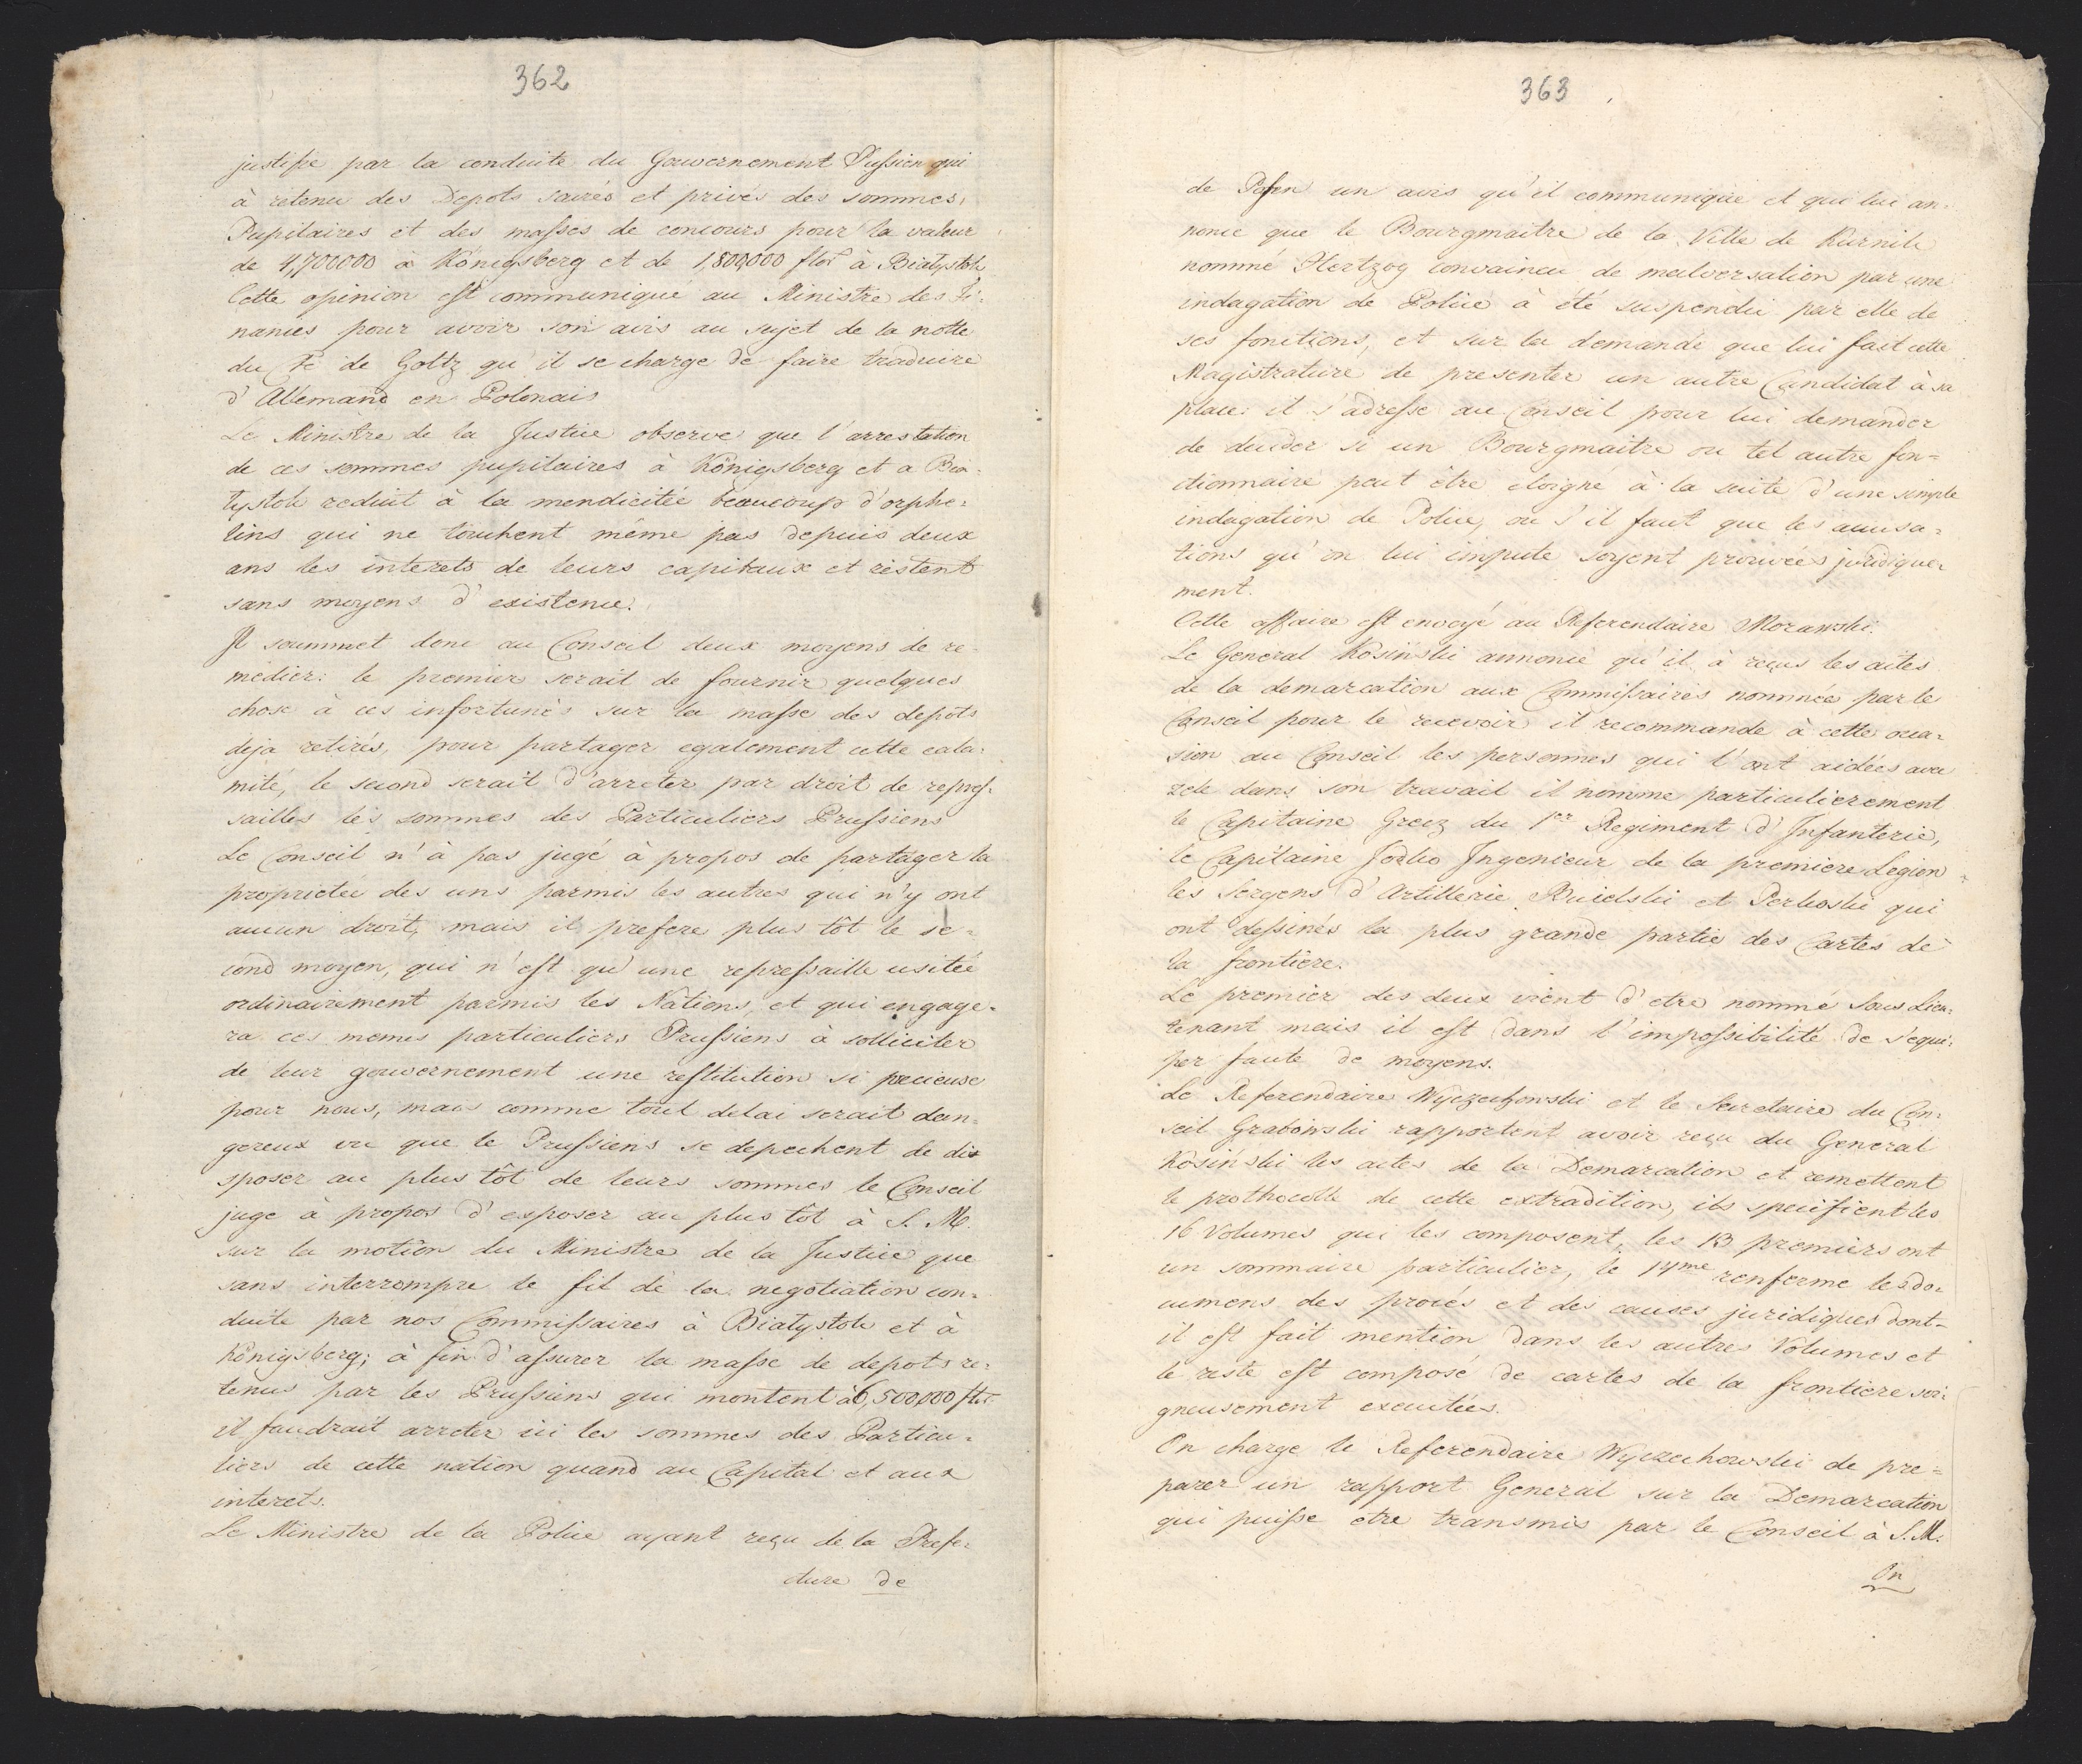 362
justifié par la conduite du Gouvernement Prussien qui
à retenu des Depots sacrés et privés des sommes
Pupilaires et des masses de concours pour la valeur
de 4,700000 à Königsberg et de 1,800,000 flor à Białystok
Cette opinion est communiqué au Ministre des Fi=
nances pour avoir son avis au sujet de la notte
du Cte de Goltz qu'il se charge de faire traduire
d'Allemand en Polonais
Le Ministre de la Justice observe que l'arrestation
de ces sommes pupilaires à Königsberg et a Bia=
łystok reduit à la mendicitée beaucoup d'orphe=
lins qui ne touchent même pas depuis deux
ans les interets de leurs capitaux et restent
sans moyens d'existence.
Il soummet donc au Conseil deux moyens de re=
medier: le premier serait de fournir quelques
chose à ces infortunés sur la masse des depôts
deja retirés, pour partager egalement cette cala=
mité, le second serait d'arreter par droit de repres=
sailles les sommes des Particuliers Prussiens
Le Conseil n'à pas jugé à propos de partager la
proprietée des uns parmis les autres qui n'y ont
aucun droit, mais il prefere plus tôt le se=
cond moyen, qui n'est qu'une repressaille usitée
ordinairement parmis les Nations, et qui engage=
ra ces memes particuliers Prussiens à solliciter
de leur gouvernement une restitution si precieuse
pour nous, mais comme tout delai serait dan=
gereux vu que le Prussiens se depechent de dis
sposer au plus tôt de leurs sommes le Conseil
juge à propos d'exposer au plus tôt à S. M.
sur la motion du Ministre de la Justice que
sans interrompre le fil de la negotiation con=
duite par nos Commissaires à Białystok et à
Königsberg; à fin d'assurer la masse de depots re=
tenus par les Prussiens qui montent à 6,500,000 flor
il faudrait arreter ici les sommes des Particu=
liers de cette nation quand au Capital et aux
interets.
Le Ministre de la Police ayant reçu de la Prefe=
cture de
363
de Posen un avis qu'il communique et qui lui an=
nonce que le Bourgmaitre de la Ville de Kurnik
nommé Hertzog convaincu de malversation par une
indagation de Police à été suspendu par elle de
ses fonctions, et sur la demande que lui fait cette
Magistrature de presenter un autre Candidat à sa
place: il s'adresse au Conseil pour lui demander
de decider si un Bourgmaitre ou tel autre fon=
ctionnaire peut être eloigné à la suite d'une simple
indagation de Police, ou s'il faut que les accusa=
tions qu'on lui impute soyent prouvées juridique=
ment.
Cette affaire est envoyé au Referendaire Morawski.
Le General Kosiński annonce qu'il à reçus les actes
de la demarcation aux Commissaires nommée par le
Conseil pour le recevoir il recommande à cette occa=
sion au Conseil les personnes qui l'ont aidées avec
zele dans son travail il nomme particulierement
le Capitaine Grecz du 1er Regiment d'Infanterie,
le Capitaine Jodko Ingenieur de la premiere Legion
les Sergens d'Artillerie et Perkoski qui
ont dessinés la plus grande partie des Cartes de
la frontière.
Le premier des deux vient d'etre nommé Sous Lieu=
tenant mais il est dans l'impossibilité de s'equi=
per faute de moyens.
Le Referendaire Wyczechowski et le Secretaire du Con=
seil Grabowski rapportent avoir reçu du General
Kosiński les actes de la Demarcation et remettent
le prothocolle de cette extradition, ils specifient les
16 Volumes qui les composent, les 13 premiers ont
un sommaire particulier, le 14me renferme les do=
cumens des procés et des causes juridiques dont
il est fait mention dans les autres Volumes et
le reste est composé de cartes de la frontiere soi=
gneusement executées.
On charge le Referendaire Wyczechowski de pre=
parer un rapport General sur la Demarcation
qui puisse etre transmis par le Conseil à S. M.
On